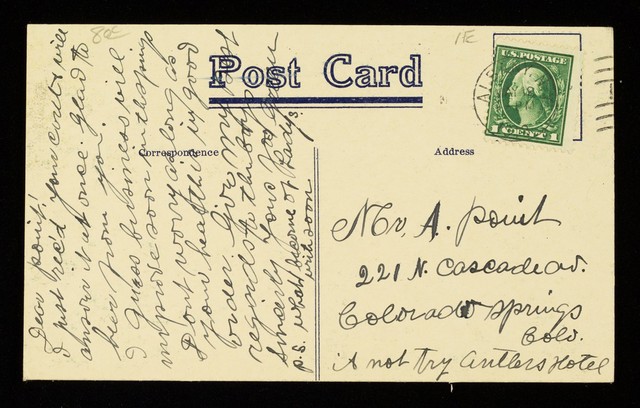 80E
1E
Post Card
U.S. POSTAGE
1 CENT 1
Correspondence
Address
Dear point!
I just rec'd your card & will
answer it at once. glad to
hear from you.
I guess business will
improve soon in the spring
Dont worry as long as
your health is in good
order. Give my best
regards to the boys
Sincerely yours
P.S. what become of Rudy?
write soon
Mr. A. point
221 N. Cascade av.
Colorado Springs
Colo.
if not try Antlers Hotel